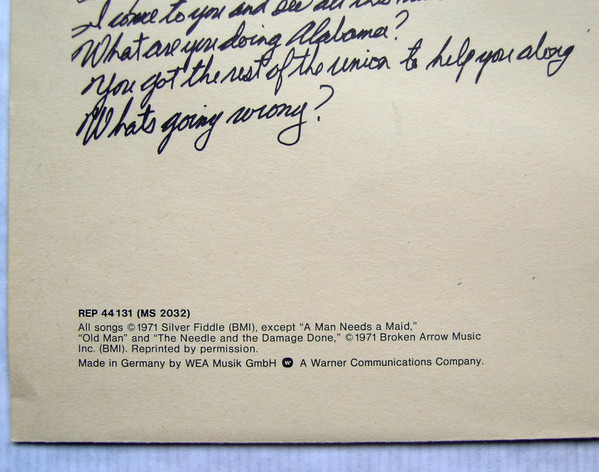 I come to you and see all this
What are you doing Alabama?
You got the rest of the union to help you along
Whats going wrong?
REP 44 131 (MS 2032)
All songs ©1971 Silver Fiddle (BMI), except “A Man Needs a Maid,”
“Old Man” and “The Needle and the Damage Done,” ©1971 Broken Arrow Music
Inc. (BMI). Reprinted by permission.
Made in Germany by WEA Musik GmbH W A Warner Communications Company.